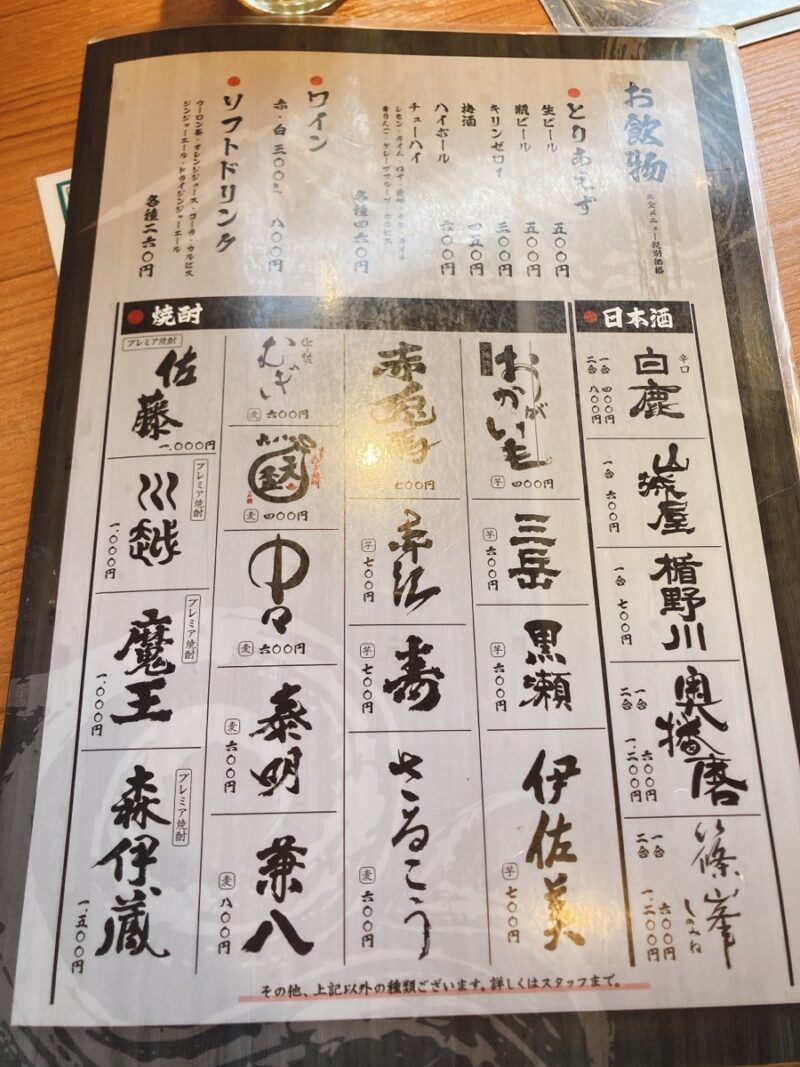 お飲物
※全メニュー税別価格
とりあえず
生ビール 五〇〇円
瓶ビール 五〇〇円
キリンゼロイ 三〇〇円
梅酒 四五〇円
ハイボール 六〇〇円
チューハイ
各種四六〇円
ワイン
赤・白三〇〇㎖ 八〇〇円
ソフトドリンク
ウーロン茶・オレンジジュース・コーラ・カルピス
ジンジャーエール・ドライジンジャーエール
各種二六〇円
日本酒
白鹿
辛口
一合 四〇〇円
二合 八〇〇円
山城屋
一合 六〇〇円
楯野川
一合 七〇〇円
奥播磨
一合 六〇〇円
二合 一.二〇〇円
篠峯
しのみね
一合 六〇〇円
二合 一.二〇〇円
焼酎
おおがいも
芋 四〇〇円
三岳
芋 六〇〇円
黒瀬
芋 六〇〇円
伊佐美
芋 七〇〇円
赤兎馬
七〇〇円
赤江
芋 七〇〇円
寿
芋 七〇〇円
さるこう
麦 六〇〇円
むぎ
麦 六〇〇円
麦 四〇〇円
中々
麦 六〇〇円
泰明
麦 六〇〇円
兼八
麦 八〇〇円
プレミア焼酎
佐藤
一.〇〇〇円
プレミア焼酎
川越
一.〇〇〇円
プレミア焼酎
魔王
一.〇〇〇円
プレミア焼酎
森伊蔵
一.五〇〇円
その他、上記以外の種類ございます。詳しくはスタッフまで。